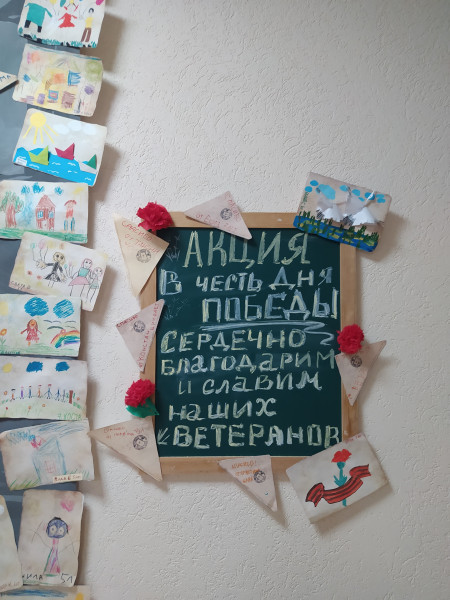 АКЦИЯ
В ЧЕСТЬ ДНЯ
ПОБЕДЫ
СЕРДЕЧНО
БЛАГОДАРИМ
И СЛАВИМ
НАШИХ
ВЕТЕРАНОВ